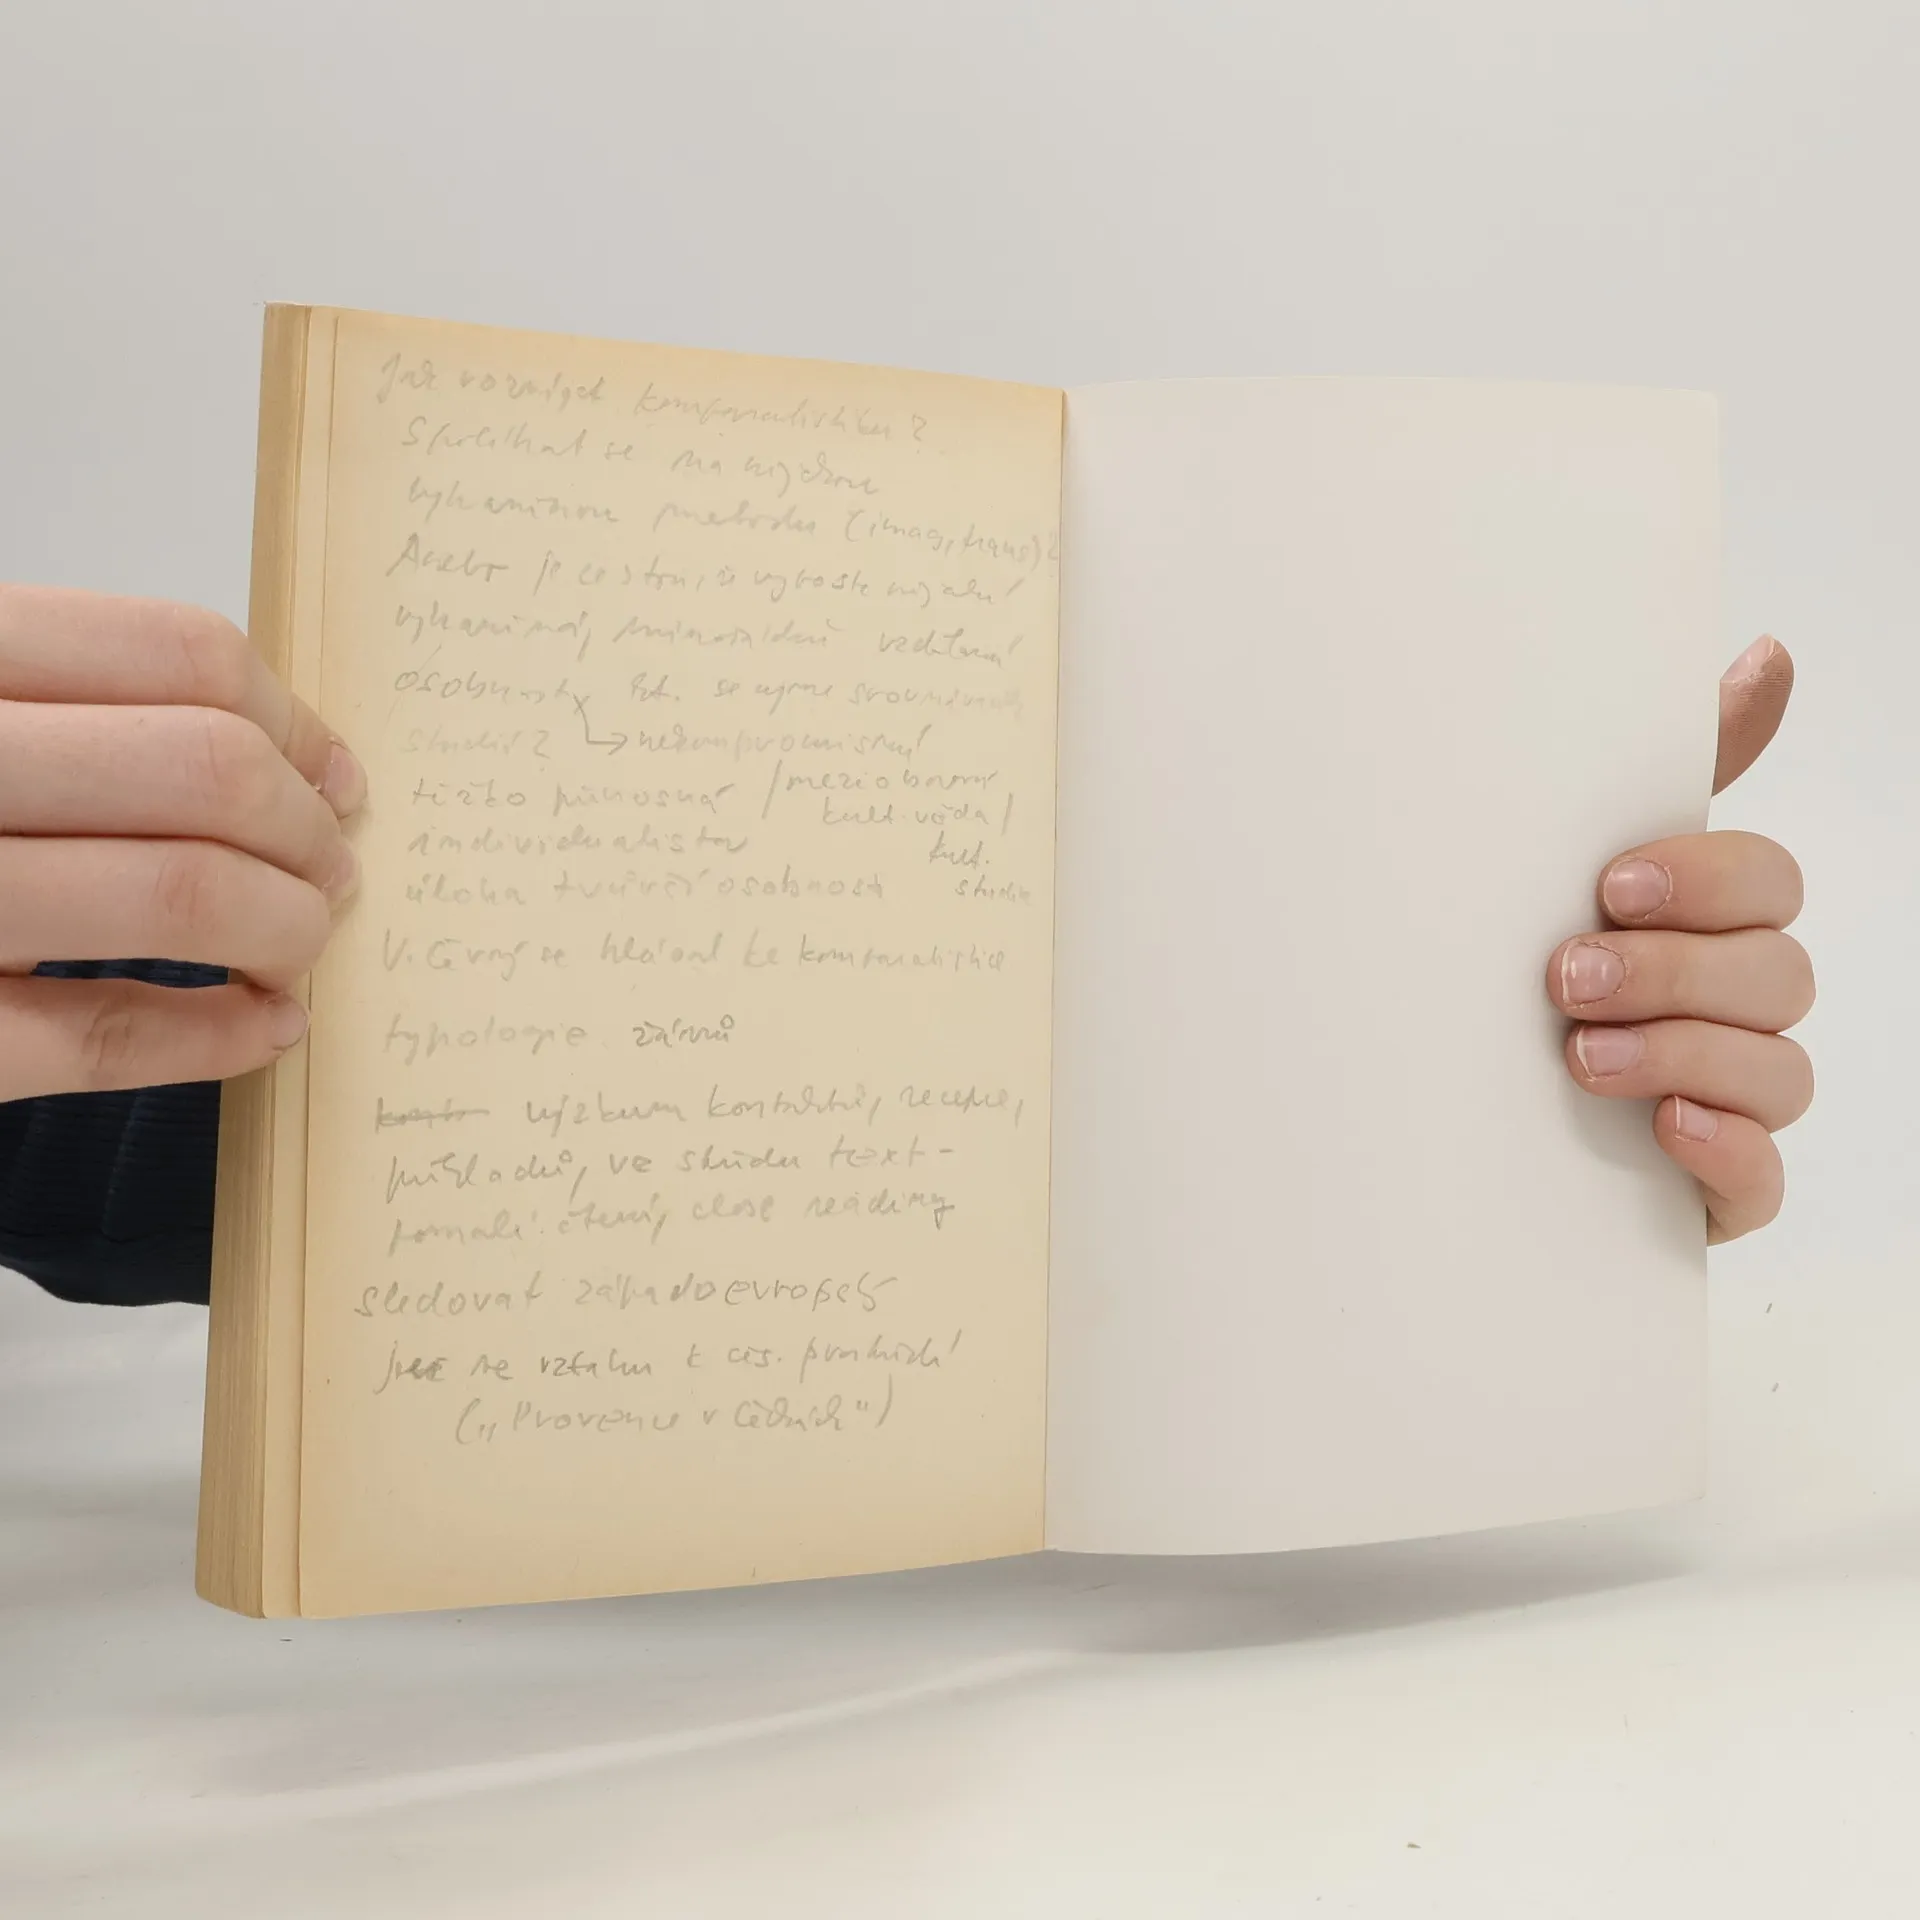 Jak rozvíjet komparatistiku?
Spoléhat se na
vyhraněnou metodu (imag, trans)?
Anebo je cestou, že vyroste
vyhraněná, mimořádně vzdělaná
osobnosty kt. se ujme srovnávacích
studií? → nekompromisní
těžko přínosná /mezioborová
kult. věda/
individualistov kult.
úloha tvůrčí osobnosti studia
V. Černý se hlásil ke komparatistice
typologie žánrů
výzkum kontaktů, recepce,
překladů, ve studiu text-
pomalé čtení, close reading
sledovat západoevropské
jen ve vztahu k čes. prostředí
(„Provence v Čechách")